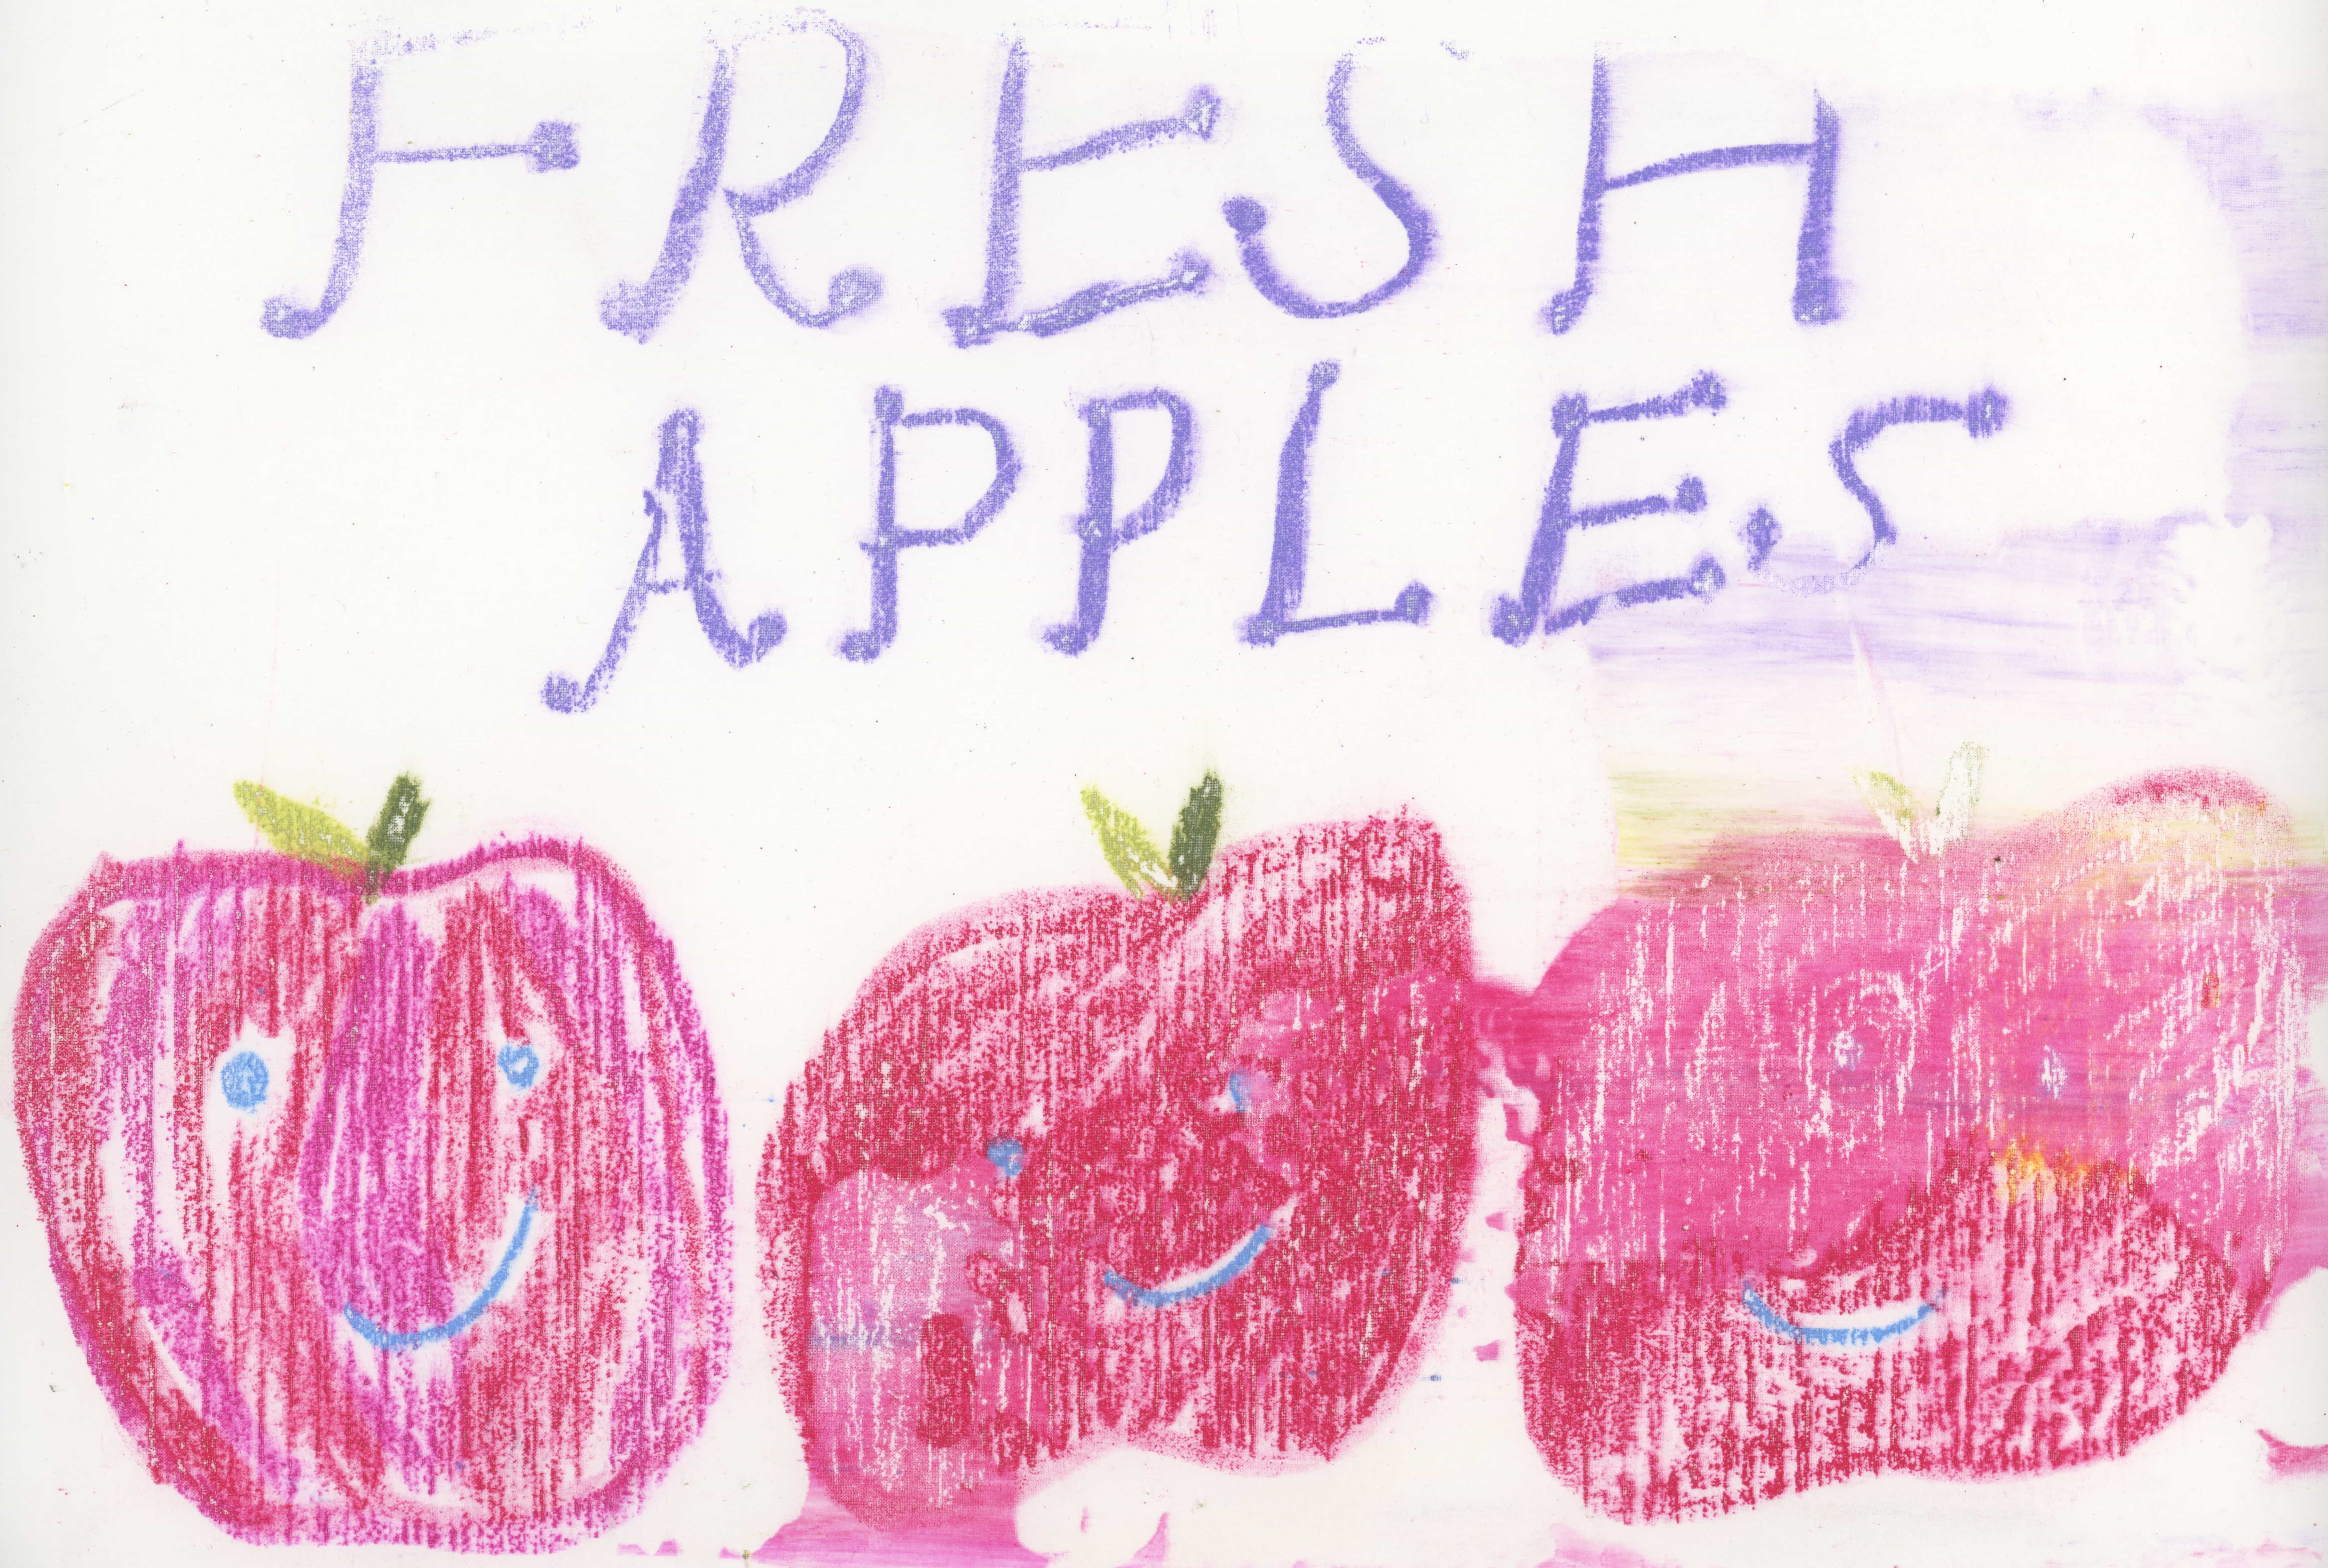 FRESH
APPLES